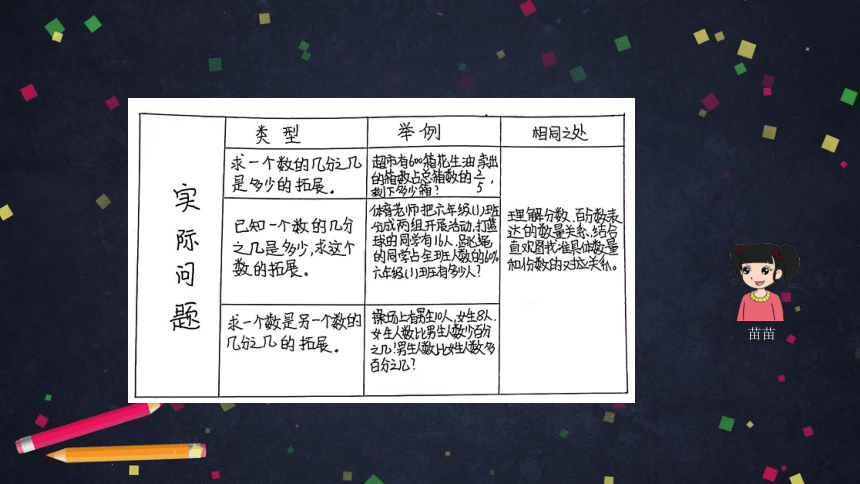 实际问题
类型
举例
相同之处
求一个数的几分之几
是多少的拓展。
超市有600箱花生油,卖出
的箱数占总箱数的2/5,
剩下多少箱?
已知一个数的几分
之几是多少,求这个
数的拓展。
体育老师把六年级(1)班
分成两组开展活动,打蓝
球的同学有16人,跳绳
的同学占全班人数的60%
六年级(1)班有多少人?
求一个数是另一个数的
几分之几的拓展。
操场上有男生10人,女生8人.
女生人数比男生人数少百分
之几?男生人数比女生人数多
百分之几?
理解分数、百分数表
达的数量关系、结合
直观图找准具体数量
和份数的对应关系。
苗苗